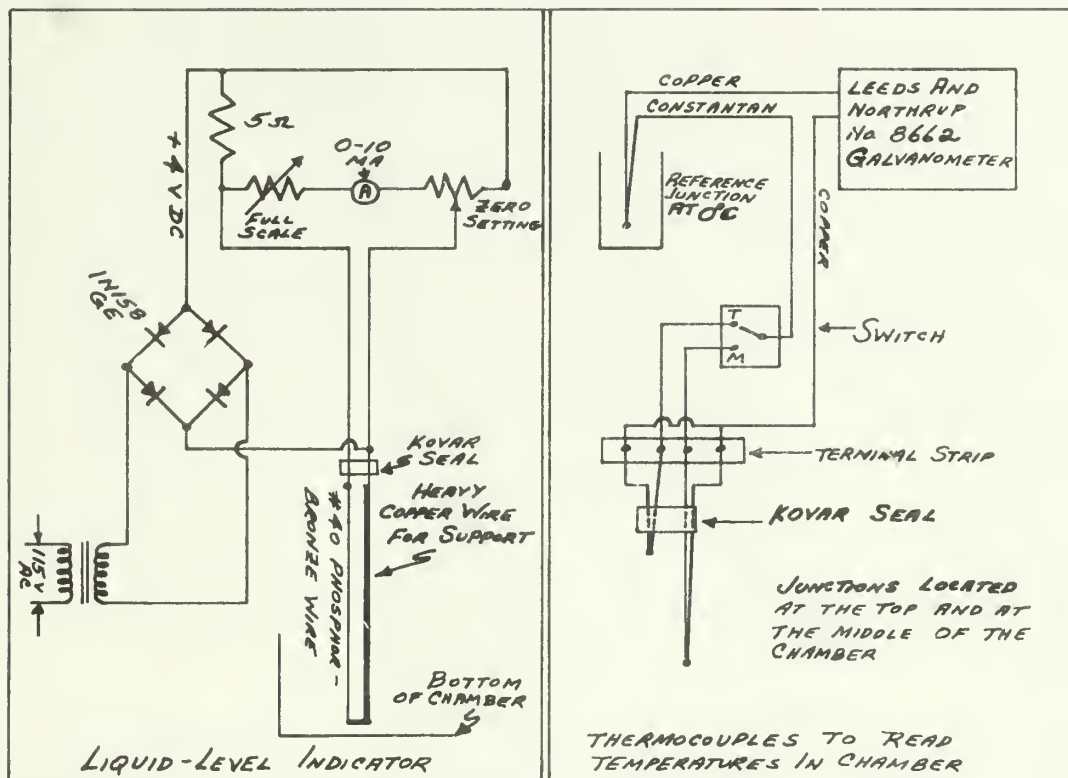 5Ω
0-10
MA
A
FULL
SCALE
ZERO
SETTING
+ 4 V DC
1N158
GE
KOVAR
SEAL
HEAVY
COPPER WIRE
FOR SUPPORT
#40 PHOSPHOR-
BRONZE WIRE
115V
AC
BOTTOM
OF CHAMBER
LIQUID-LEVEL INDICATOR
COPPER
CONSTANTAN
LEEDS AND
NORTHRUP
No 8662
GALVANOMETER
REFERENCE
JUNCTION
AT 0°C
COPPER
T
M
SWITCH
TERMINAL STRIP
KOVAR SEAL
JUNCTIONS LOCATED
AT THE TOP AND AT
THE MIDDLE OF THE
CHAMBER
THERMOCOUPLES TO READ
TEMPERATURES IN CHAMBER